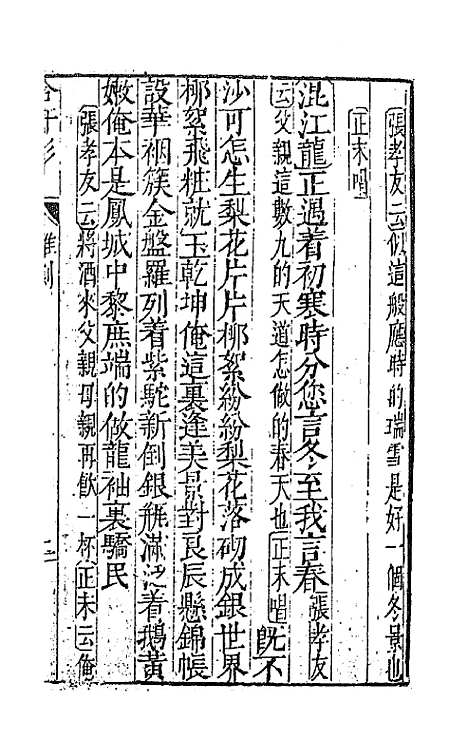 張孝友云似這般應時的瑞雪是好一個冬景也
正末唱
混江龍正遇着初寒時分您言冬至我言春張孝友
云父親這數九的天道怎做的春天也正末唱旣不
沙可怎生梨花片片柳絮紛紛梨花落砌成銀世界
柳絮飛粧就玉乾坤俺這裏逢美景對良辰懸錦帳
設華裀簇金盤羅列着紫駝新倒銀瓶滿泛着鵝黃
嫩俺本是鳳城中黎庶端的做龍袖裏驕民
張孝友云將酒來父親母親再飮一杯正末云俺
合汗衫
雜劇
二